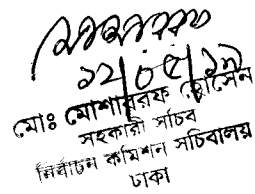 ১২/০৫/১৯
মোঃ মোশাররফ হোসেন
সহকারী সচিব
নির্বাচন কমিশন সচিবালয়
ঢাকা